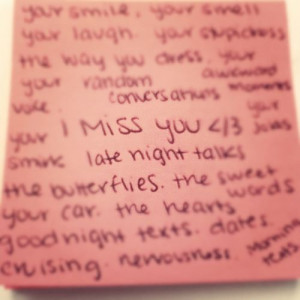 your smile, your smell
your laugh. your stupidness
the way you dress. your
your random awkward
voice conversations moments
your I MISS YOU </3 your jokes
smirk late night talks
the butterflies. the sweet
your car. the hearts words
goodnight texts. dates.
cruising. nervousness. morning texts.